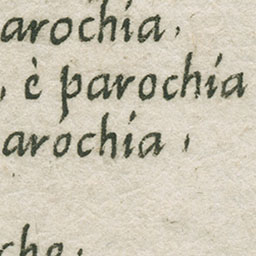 arochia,
, è parochia
arochia,
che,